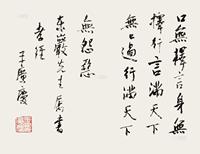 口無擇言身無
擇行言滿天下
無口過行滿天下
無怨惡
東巖先生屬書
孝經
王广慶